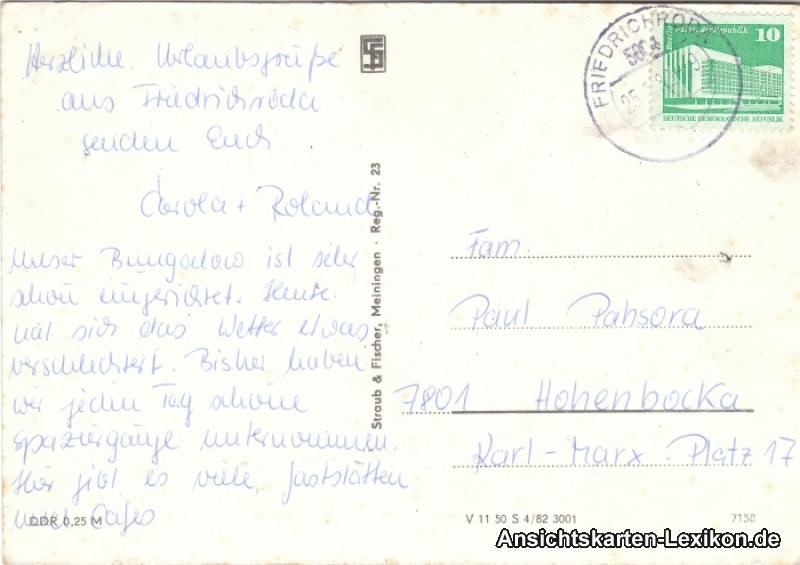 Herzliche Urlaubsgrüße
aus Friedrichroda
senden Euch
Carola + Roland
Unser Bungalow ist sehr
schön eingerichtet. Heute
hat sich das Wetter etwas
verschlechtert. Bisher haben
wir jeden Tag schöne
Spaziergänge unternommen.
Hier gibt es viele Gaststätten
und Cafes
DDR 0,25 M
Straub & Fischer, Meiningen · Reg.-Nr. 23
FRIEDRICHROD
Berlin Palast der Republik
10
DEUTSCHE DEMOKRATISCHE REPUBLIK
Fam.
Paul Pahsora
7801 Hohenbocka
Karl-Marx-Platz 17
V 11 50 S 4/82 3001
7150
Ansichtskarten-Lexikon.de